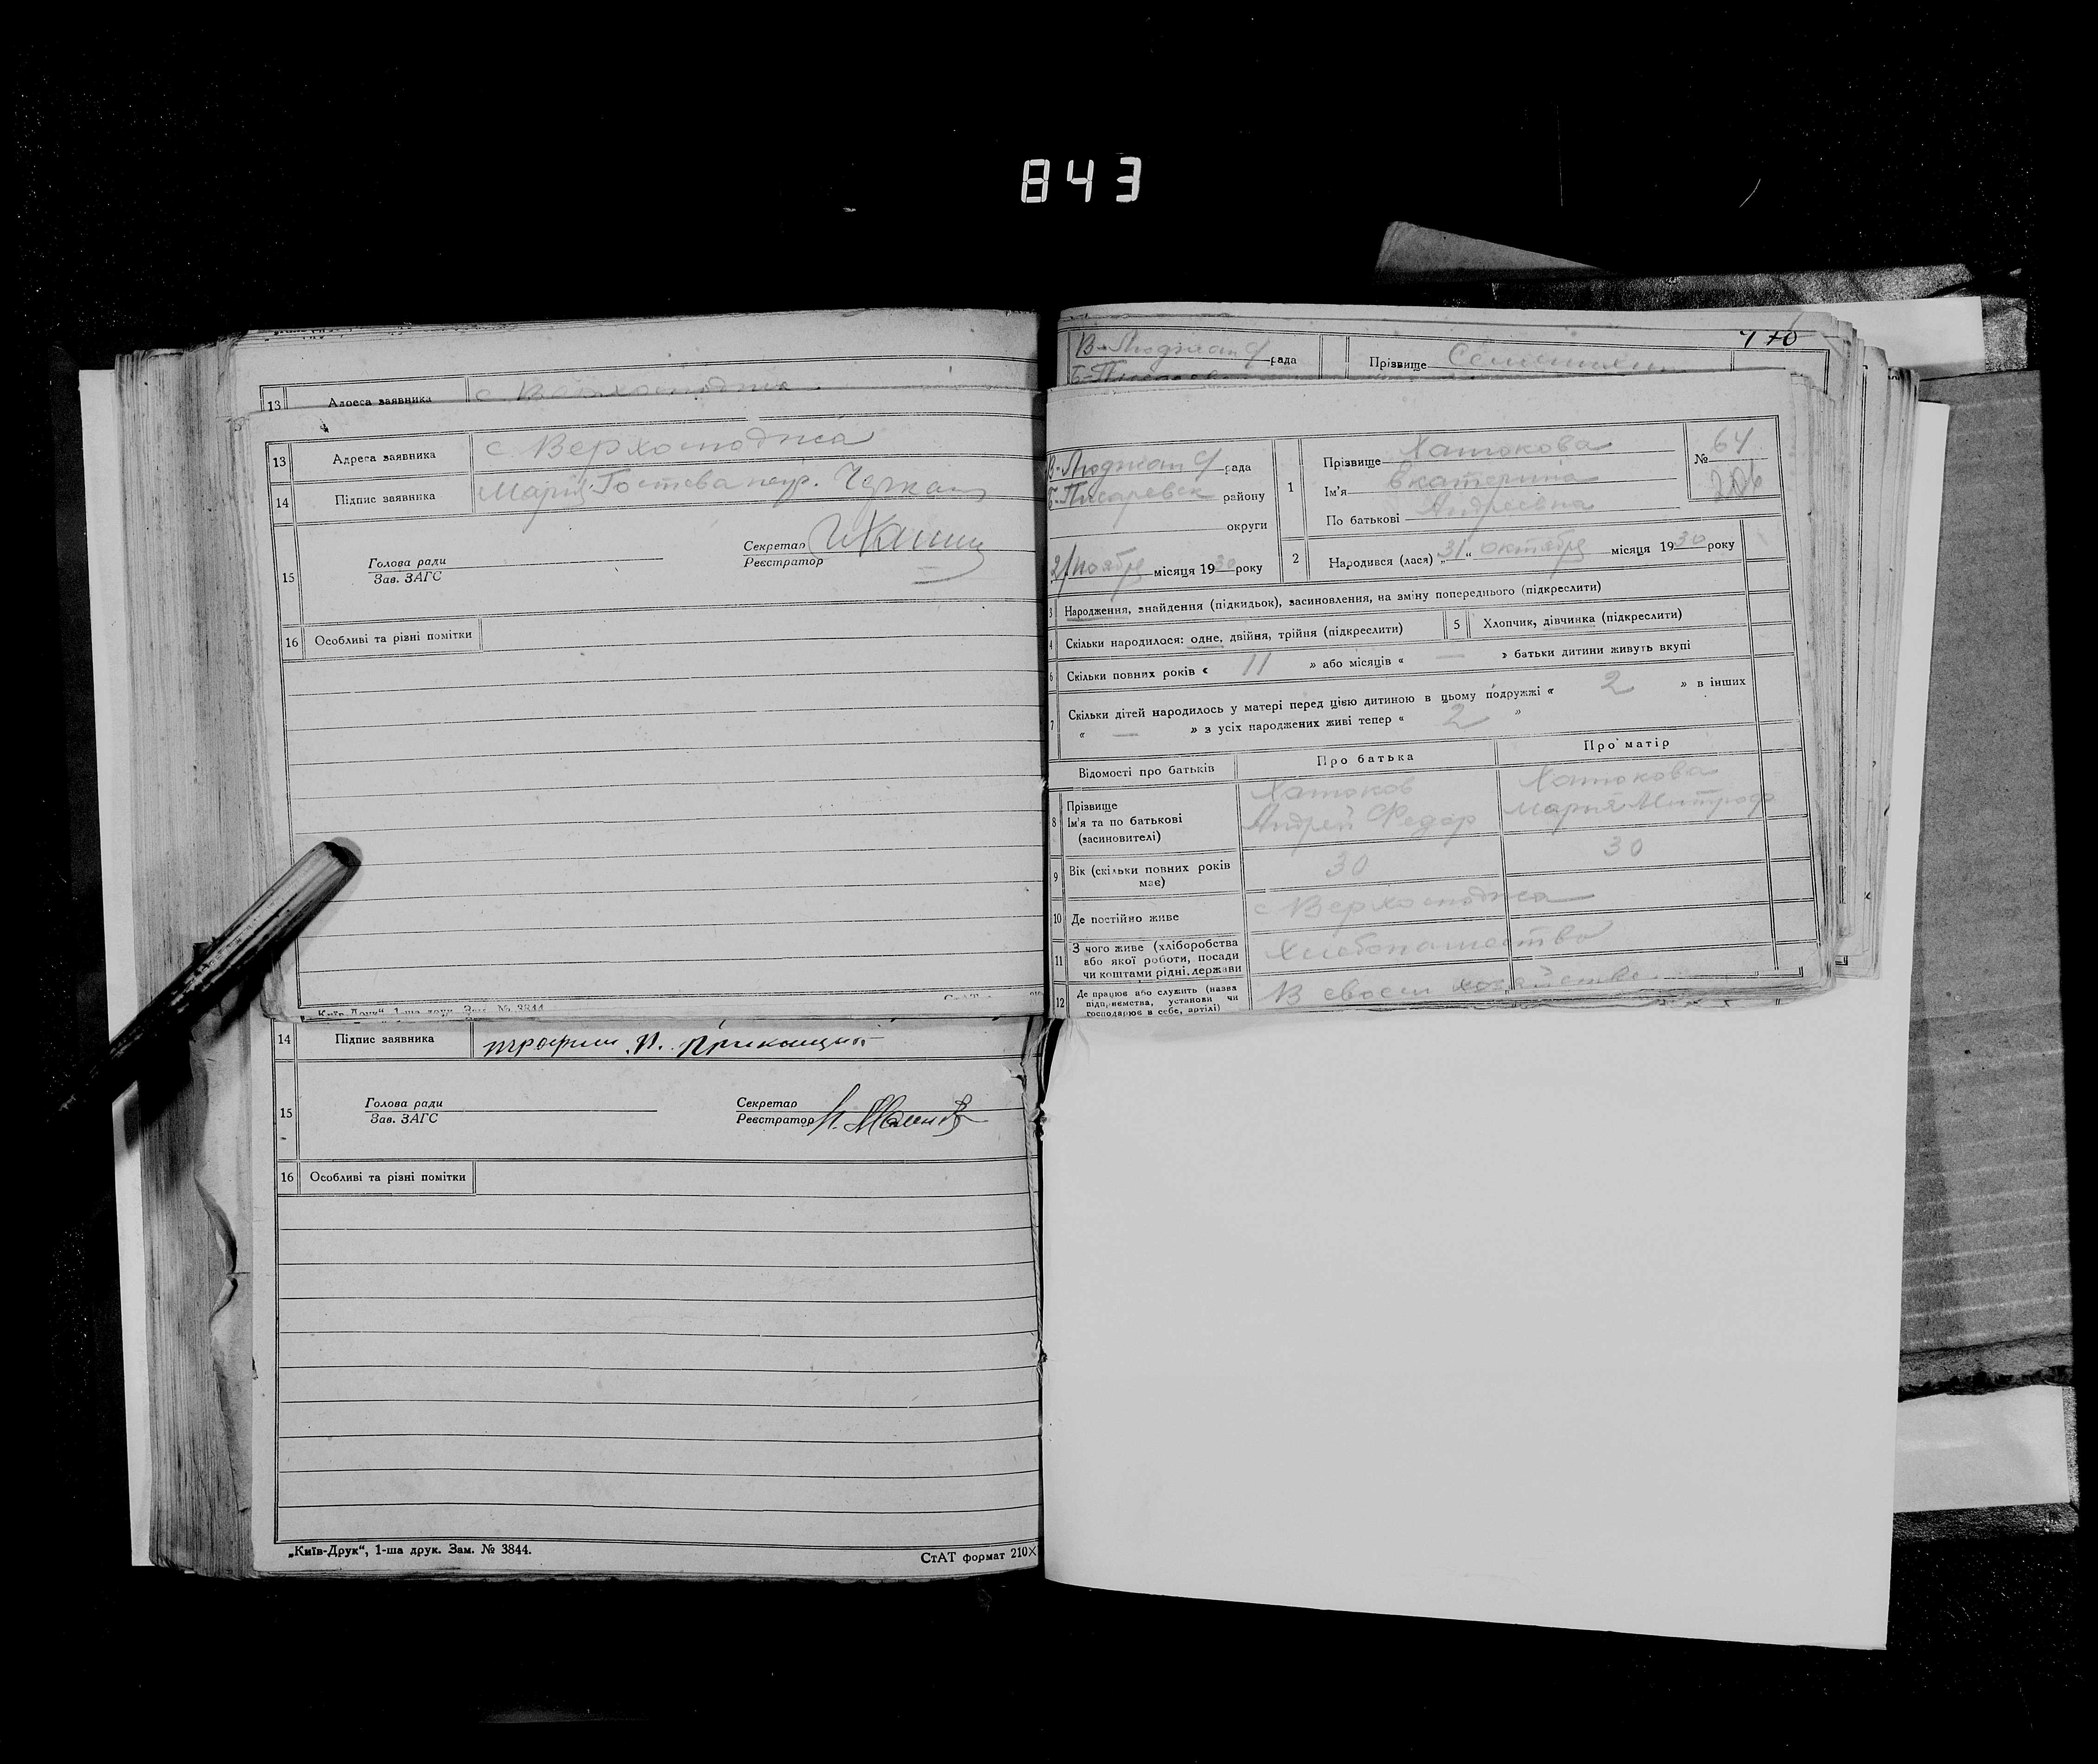 843
13 Адреса заявника с Верхолюджа
13 Адреса заявника с Верхолюджа
14 Підпис заявника Марія Гостева негр.
15 Голова ради
Зав. ЗАГС
Секретар
Реєстратор
16 Особливі та різні помітки
„Київ-Друк“, 1-ша друк. Зам. № 3844
14 Підпис заявника
15 Голова ради
Зав. ЗАГС
Секретар
Реєстратор
16 Особливі та різні помітки
„Київ-Друк“, 1-ша друк. Зам. № 3844.
СтАТ формат 210×
В-Люджан рада
Прізвище
В-Люджан рада
Б-Писаревск району
округи
2/ ноября місяця 1930 року
1 Прізвище Хатокова
Ім'я Екатерина
По батькові Андреевна
№ 64
2 Народився (лася) „31“ октября місяця 1930 року
3 Народження, знайдення (підкидьок), засиновлення, на зміну попереднього (підкреслити)
4 Скільки народилося: одне, двійня, трійня (підкреслити)
5 Хлопчик, дівчинка (підкреслити)
6 Скільки повних років « 11 » або місяців « — » батьки дитини живуть вкупі
7 Скільки дітей народилось у матері перед цією дитиною в цьому подружжі « 2 » в інших
« — » з усіх народжених живі тепер « 2 »
Відомості про батьків Про батька Про матір
8 Прізвище Хатоков Хатокова
Ім'я та по батькові Андрей Федор Мария Митроф
(засиновителі)
9 Вік (скільки повних років має) 30 30
10 Де постійно живе с Верхолюджа
11 З чого живе (хліборобства
або якої роботи, посади
чи коштами рідні, держави
Хлебопашество
12 Де працює або служить (назва
підприємства, установи чи
господарює в себе, артілі)
В своем хозяйстве